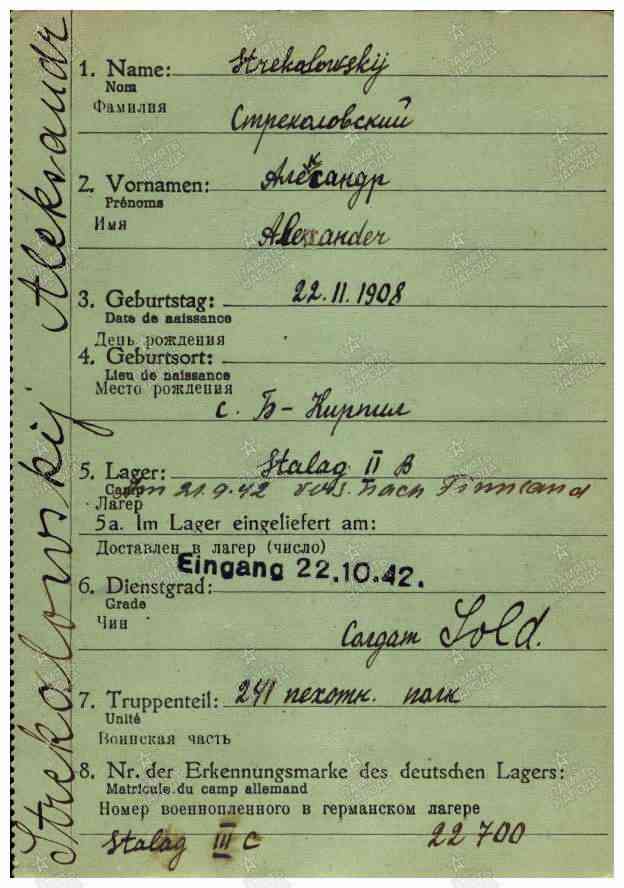 Strekalowskij Aleksandr
1. Name: Strekalowskij
Nom
Фамилия
Стрекаловский
2. Vornamen: Александр
Prénoms
Имя
Alexander
3. Geburtstag: 22.11.1908
Date de naissance
День рождения
4. Geburtsort:
Lieu de naissance
Место рождения
с. Б-Кирпил
5. Lager: Stalag II B
Camp
Am 21.9.42 vers. nach Finnland
Лагер
5a. Im Lager eingeliefert am:
Доставлен в лагер (число)
Eingang 22.10.42.
6. Dienstgrad:
Grade
Чин
Солдат Sold.
7. Truppenteil: 241 пехотн. полк
Unité
Воинская часть
8. Nr. der Erkennungsmarke des deutschen Lagers:
Matricule du camp allemand
Номер военнопленного в германском лагере
Stalag III C 22700
ПАМЯТЬ НАРОДА